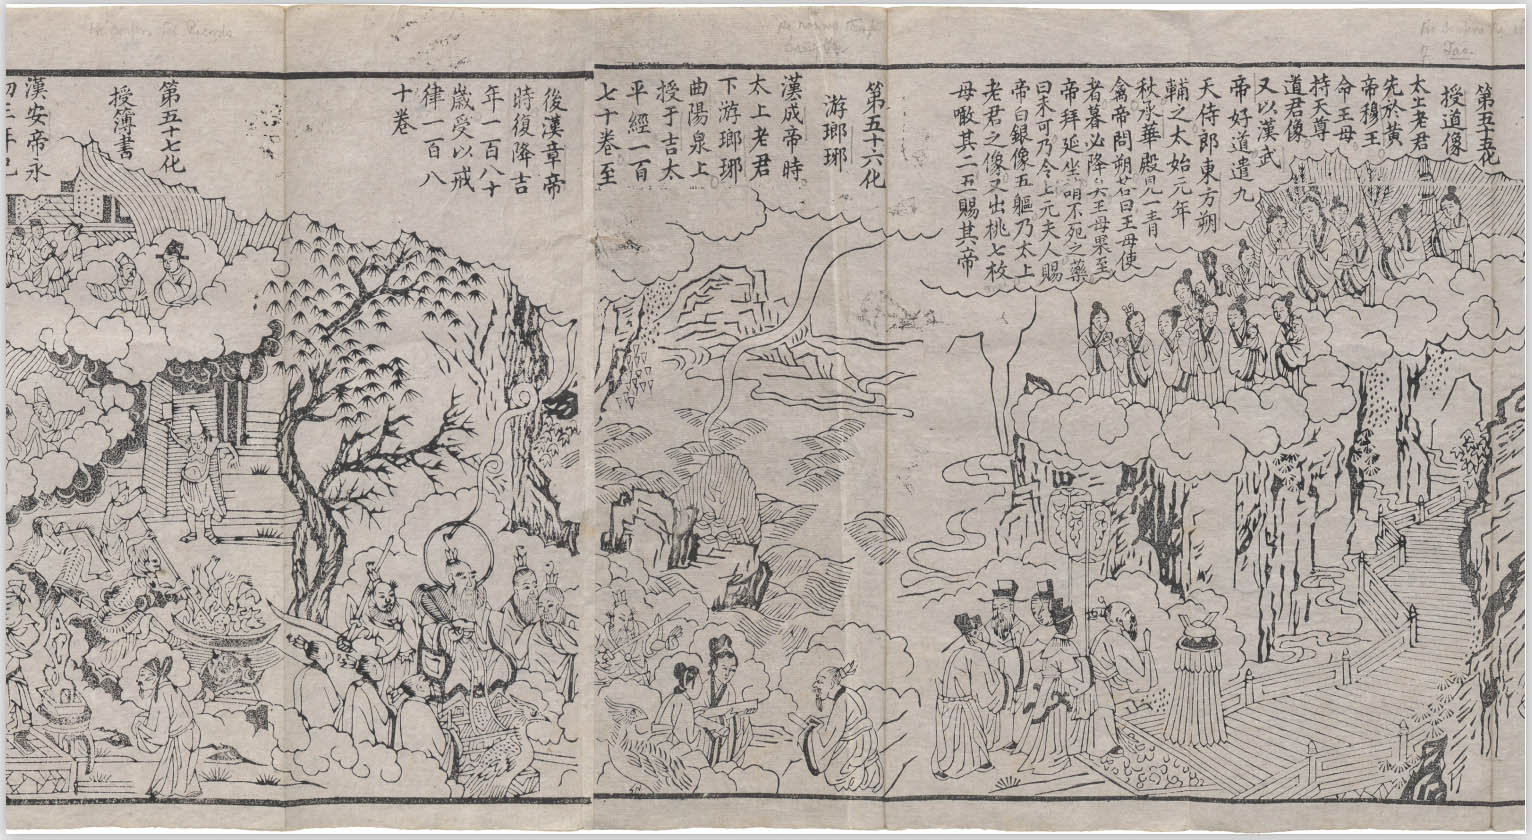 第五十五化
授道像
太上老君
先於黃
帝穆王
命王母
持天尊
道君像
又以漢武
帝好道遣九
天侍郎東方朔
輔之太始元年
秋承華殿見一青
禽帝問朔荅曰王母使
者暮必降矣王母果至
帝拜延坐咱不死之藥
曰未可乃令上元夫人賜
帝白銀像五軀乃太上
老君之像又出桃七枚
母噉其二五賜其帝
第五十六化
游瑯琊
漢成帝時
太上老君
下游瑯琊
曲陽泉上
授于吉太
平經一百
七十卷至
後漢章帝
時復降吉
年一百八十
歲受以戒
律一百八
十卷
第五十七化
授簿書
漢安帝永